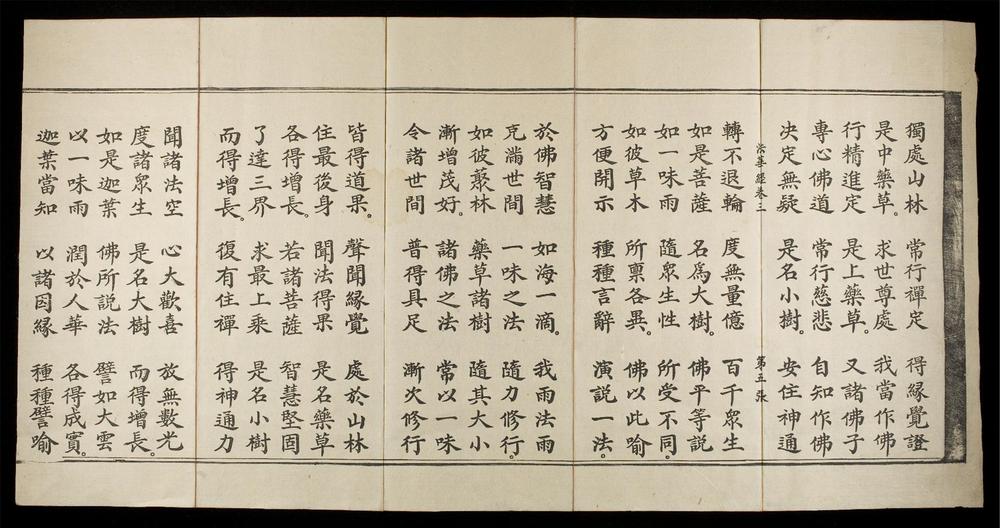 獨處山林 常行禪定 得緣覺證
是中藥草。 求世尊處 我當作佛
行精進定 是上藥草。 又諸佛子
專心佛道 常行慈悲 自知作佛
决定無疑 是名小樹。 安住神通
法華經卷三 第五张
轉不退輪 度無量億 百千衆生
如是菩薩 名爲大樹。 佛平等說
如一味雨 隨衆生性 所受不同。
如彼草木 所稟各異。 佛以此喻
方便開示 種種言辭 演說一法。
於佛智慧 如海一滴。 我雨法雨
充滿世間 一味之法 隨力修行。
如彼藂林 藥草諸樹 隨其大小
漸增茂好。 諸佛之法 常以一味
令諸世間 普得具足 漸次修行
皆得道果。 聲聞緣覺 處於山林
住最後身 聞法得果 是名藥草
各得增長。 若諸菩薩 智慧堅固
了達三界 求最上乘 是名小樹
而得增長。 復有住禪 得神通力
聞諸法空 心大歡喜 放無數光
度諸眾生 是名大樹 而得增長。
如是迦葉 佛所說法。 譬如大雲
以一味雨 潤於人華 各得成實。
迦葉當知 以諸因緣 種種譬喻